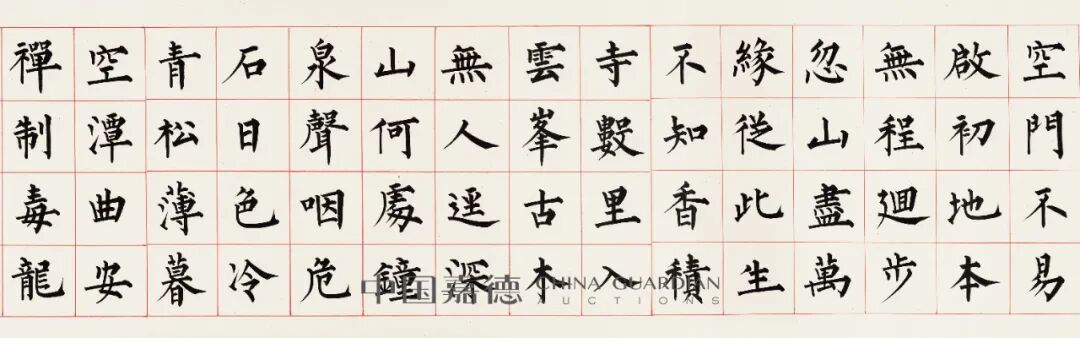 空門不易
啟初地本
無程廻步
忽山盡萬
緣從此生
不知香積
寺數里入
雲峯古木
無人逕深
山何處鐘
泉聲咽危
石日色冷
青松薄暮
空潭曲安
禪制毒龍
中国嘉德 CHINA GUARDIAN
AUCTIONS